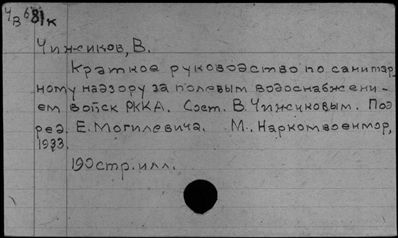 Ч 681к
В
Чижиков, В.
Краткое руководство по санитар-
ному надзору за полевым водоснабжени-
ем войск РККА. Сост. В. Чижиковым. Под
ред. Е. Могилевича. М., Наркомвоенмор,
1933.
190 стр. илл.